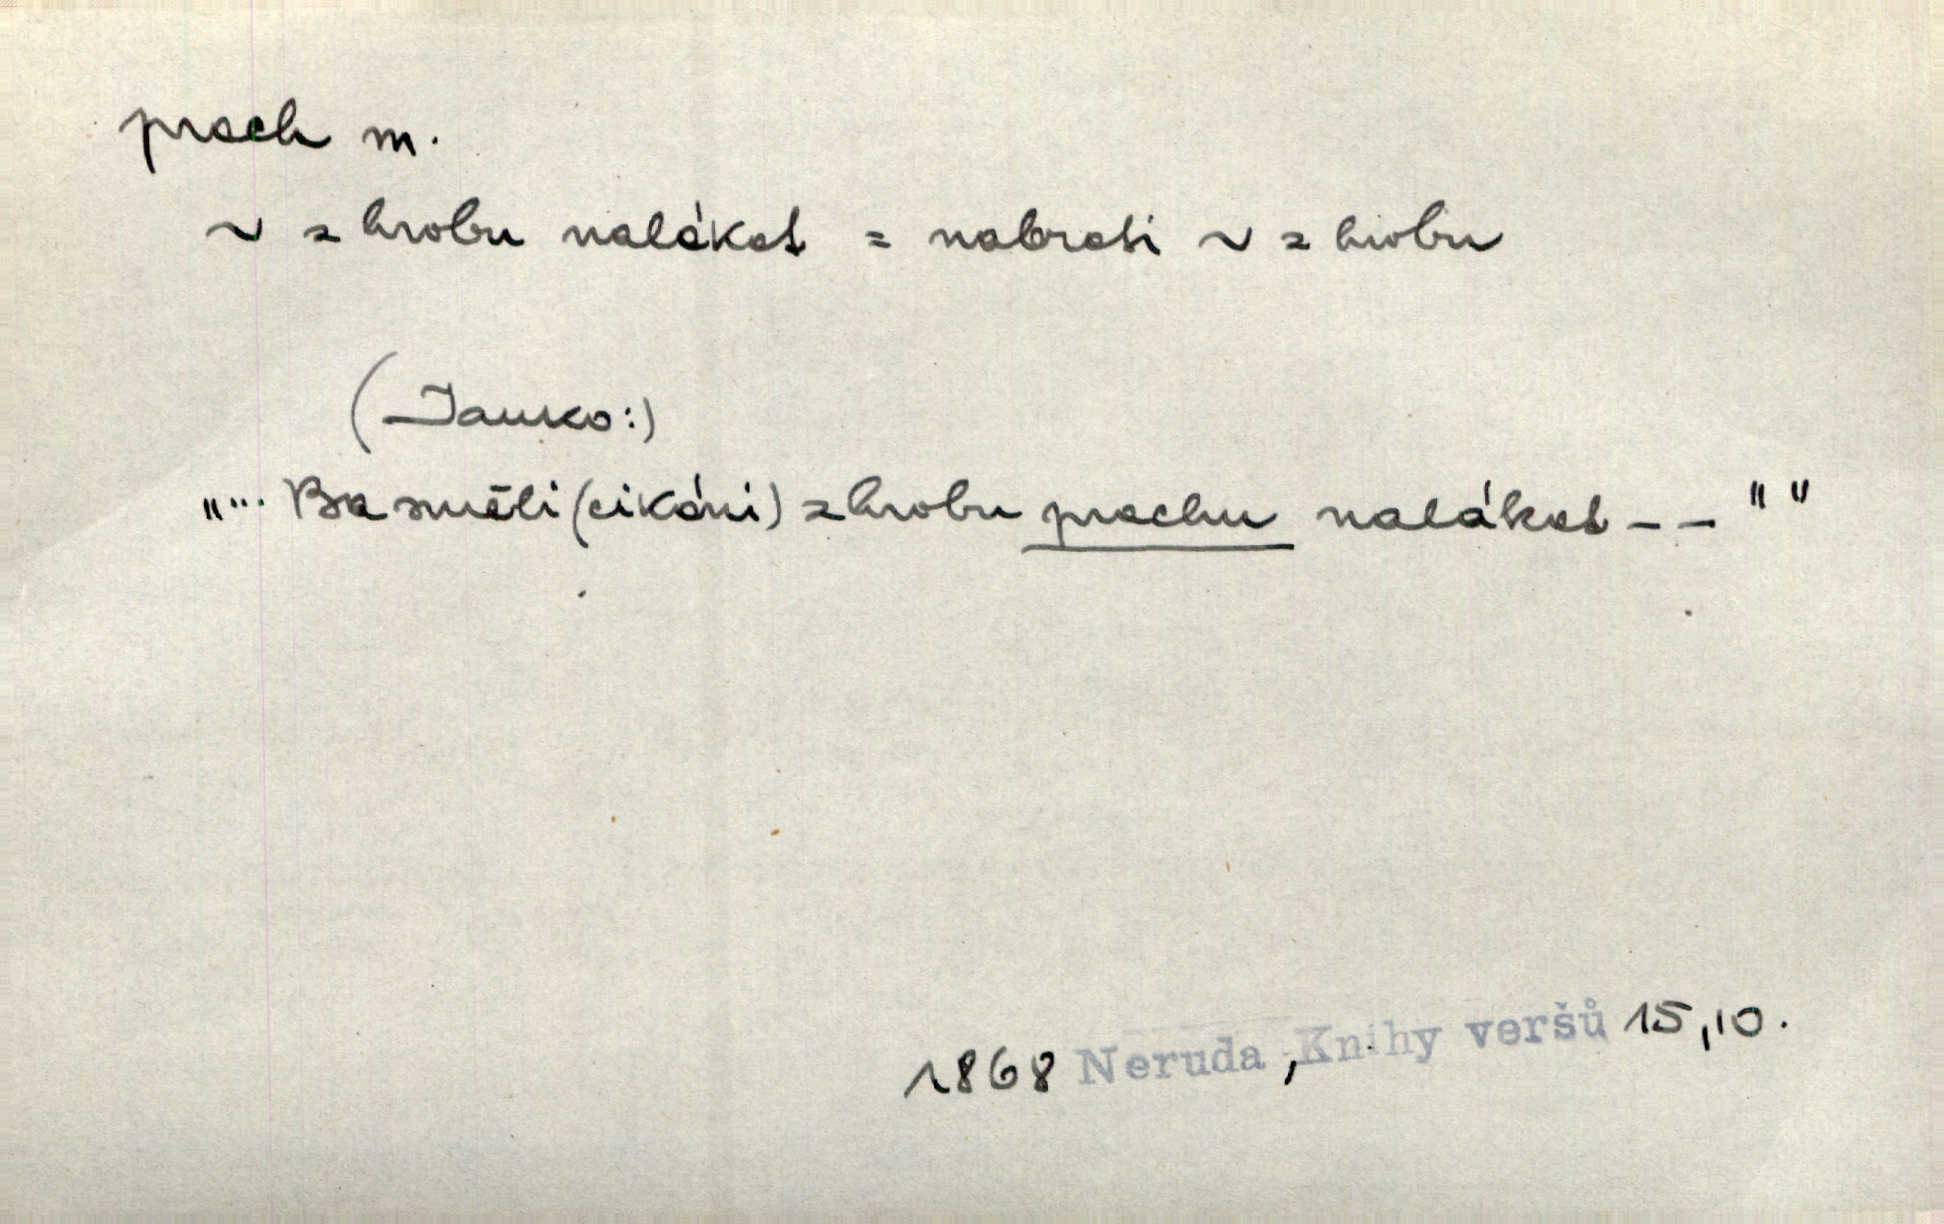 prach m.
~ z hrobu nalákat = nabrati ~ z hrobu
(Janko:)
„... Ba směli (cikáni) z hrobu prachu nalákat - - " "
1868 Neruda, Knihy veršů 15,10.